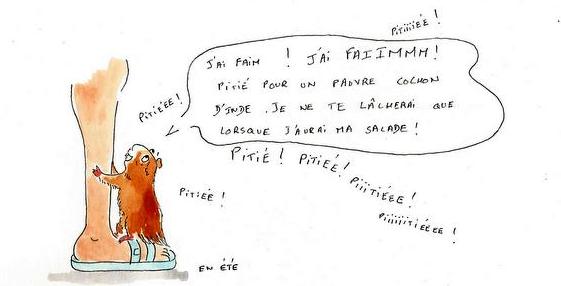 Pitiiiiéé !
J'ai faim ! J'ai FAIIMMM !
Pitié pour un pauvre cochon
d'Inde. Je ne te lâcherai que
lorsque j'aurai ma salade !
Pitiéée !
Pitié ! Pitiéé !
Piiitiééée !
Piiiiiitiéééée !
Pitiéé !
en été